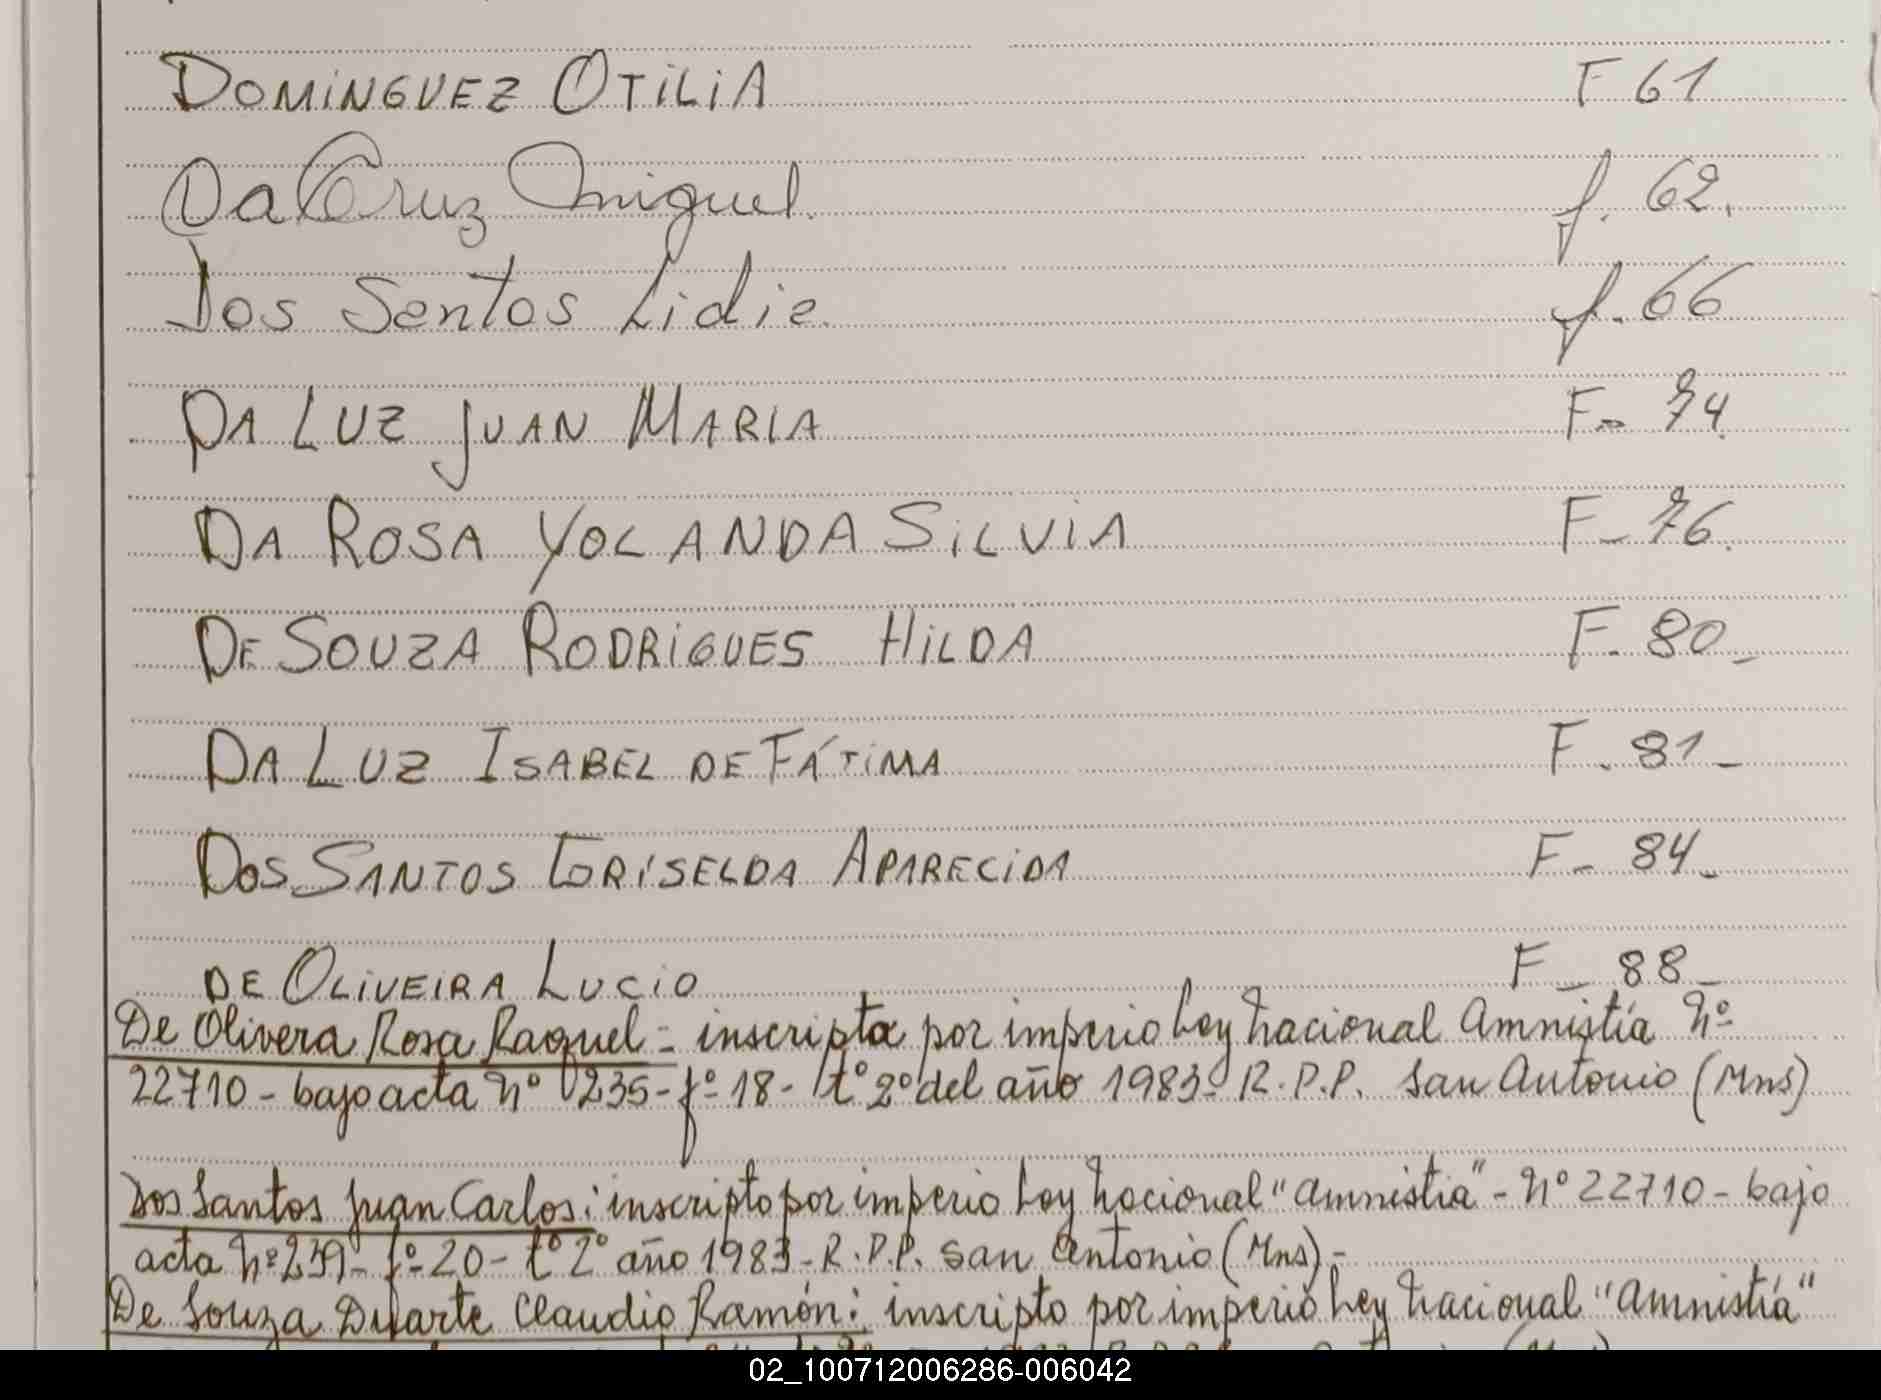 DOMINGUEZ OTILIA F 61
Da Cruz Miguel. f. 62.
Dos Santos Lidia. f. 66
DA LUZ JUAN MARIA F- 74.
DA ROSA YOLANDA SILVIA F- 76.
DE SOUZA RODRIGUES HILDA F- 80-
DA LUZ ISABEL DE FÁTIMA F. 81-
DOS SANTOS GRISELDA APARECIDA F- 84-
DE OLIVEIRA LUCIO F- 88-
De Olivera Rosa Raquel = inscripta por imperio Ley Nacional Amnistía Nº
22710 - bajo acta Nº 235 - fº 18 - tº 2º del año 1983 - R.P.P. San Antonio (Mns)
Dos Santos Juan Carlos: inscripto por imperio Ley Nacional "Amnistía" - Nº 22710 - bajo
acta Nº 239 - fº 20 - tº 2º año 1983 - R.P.P. San Antonio (Mns) -
De Souza Duarte Claudio Ramón: inscripto por imperio Ley Nacional "Amnistía"
02_100712006286-006042